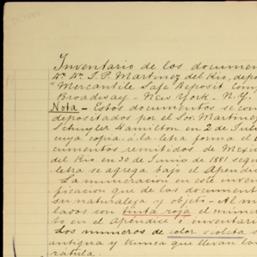 Inventario de los documen
Dn. Dn. J. P. Martinez del Rio, depo
"Mercantile Safe Deposit Com
Broadway - New York - N.Y.
Nota - Estos documentos se con
depositados por el Sor. Martinez
Schuyler Hamilton en 2 de Juli
cuya copia á la letra forma el
cumentos remitidos de Mexic
del Rio en 30 de Junio de 1881 segu
letra se agrega bajo el Apendi
La numeracion en este inven
ficacion que de los document
su naturaleza y objeto - Al m
lados con tinta roja el núme
no en el Apendice é inventari
Los números de color violeta s
antigua y nunca que llevan los
ratula.